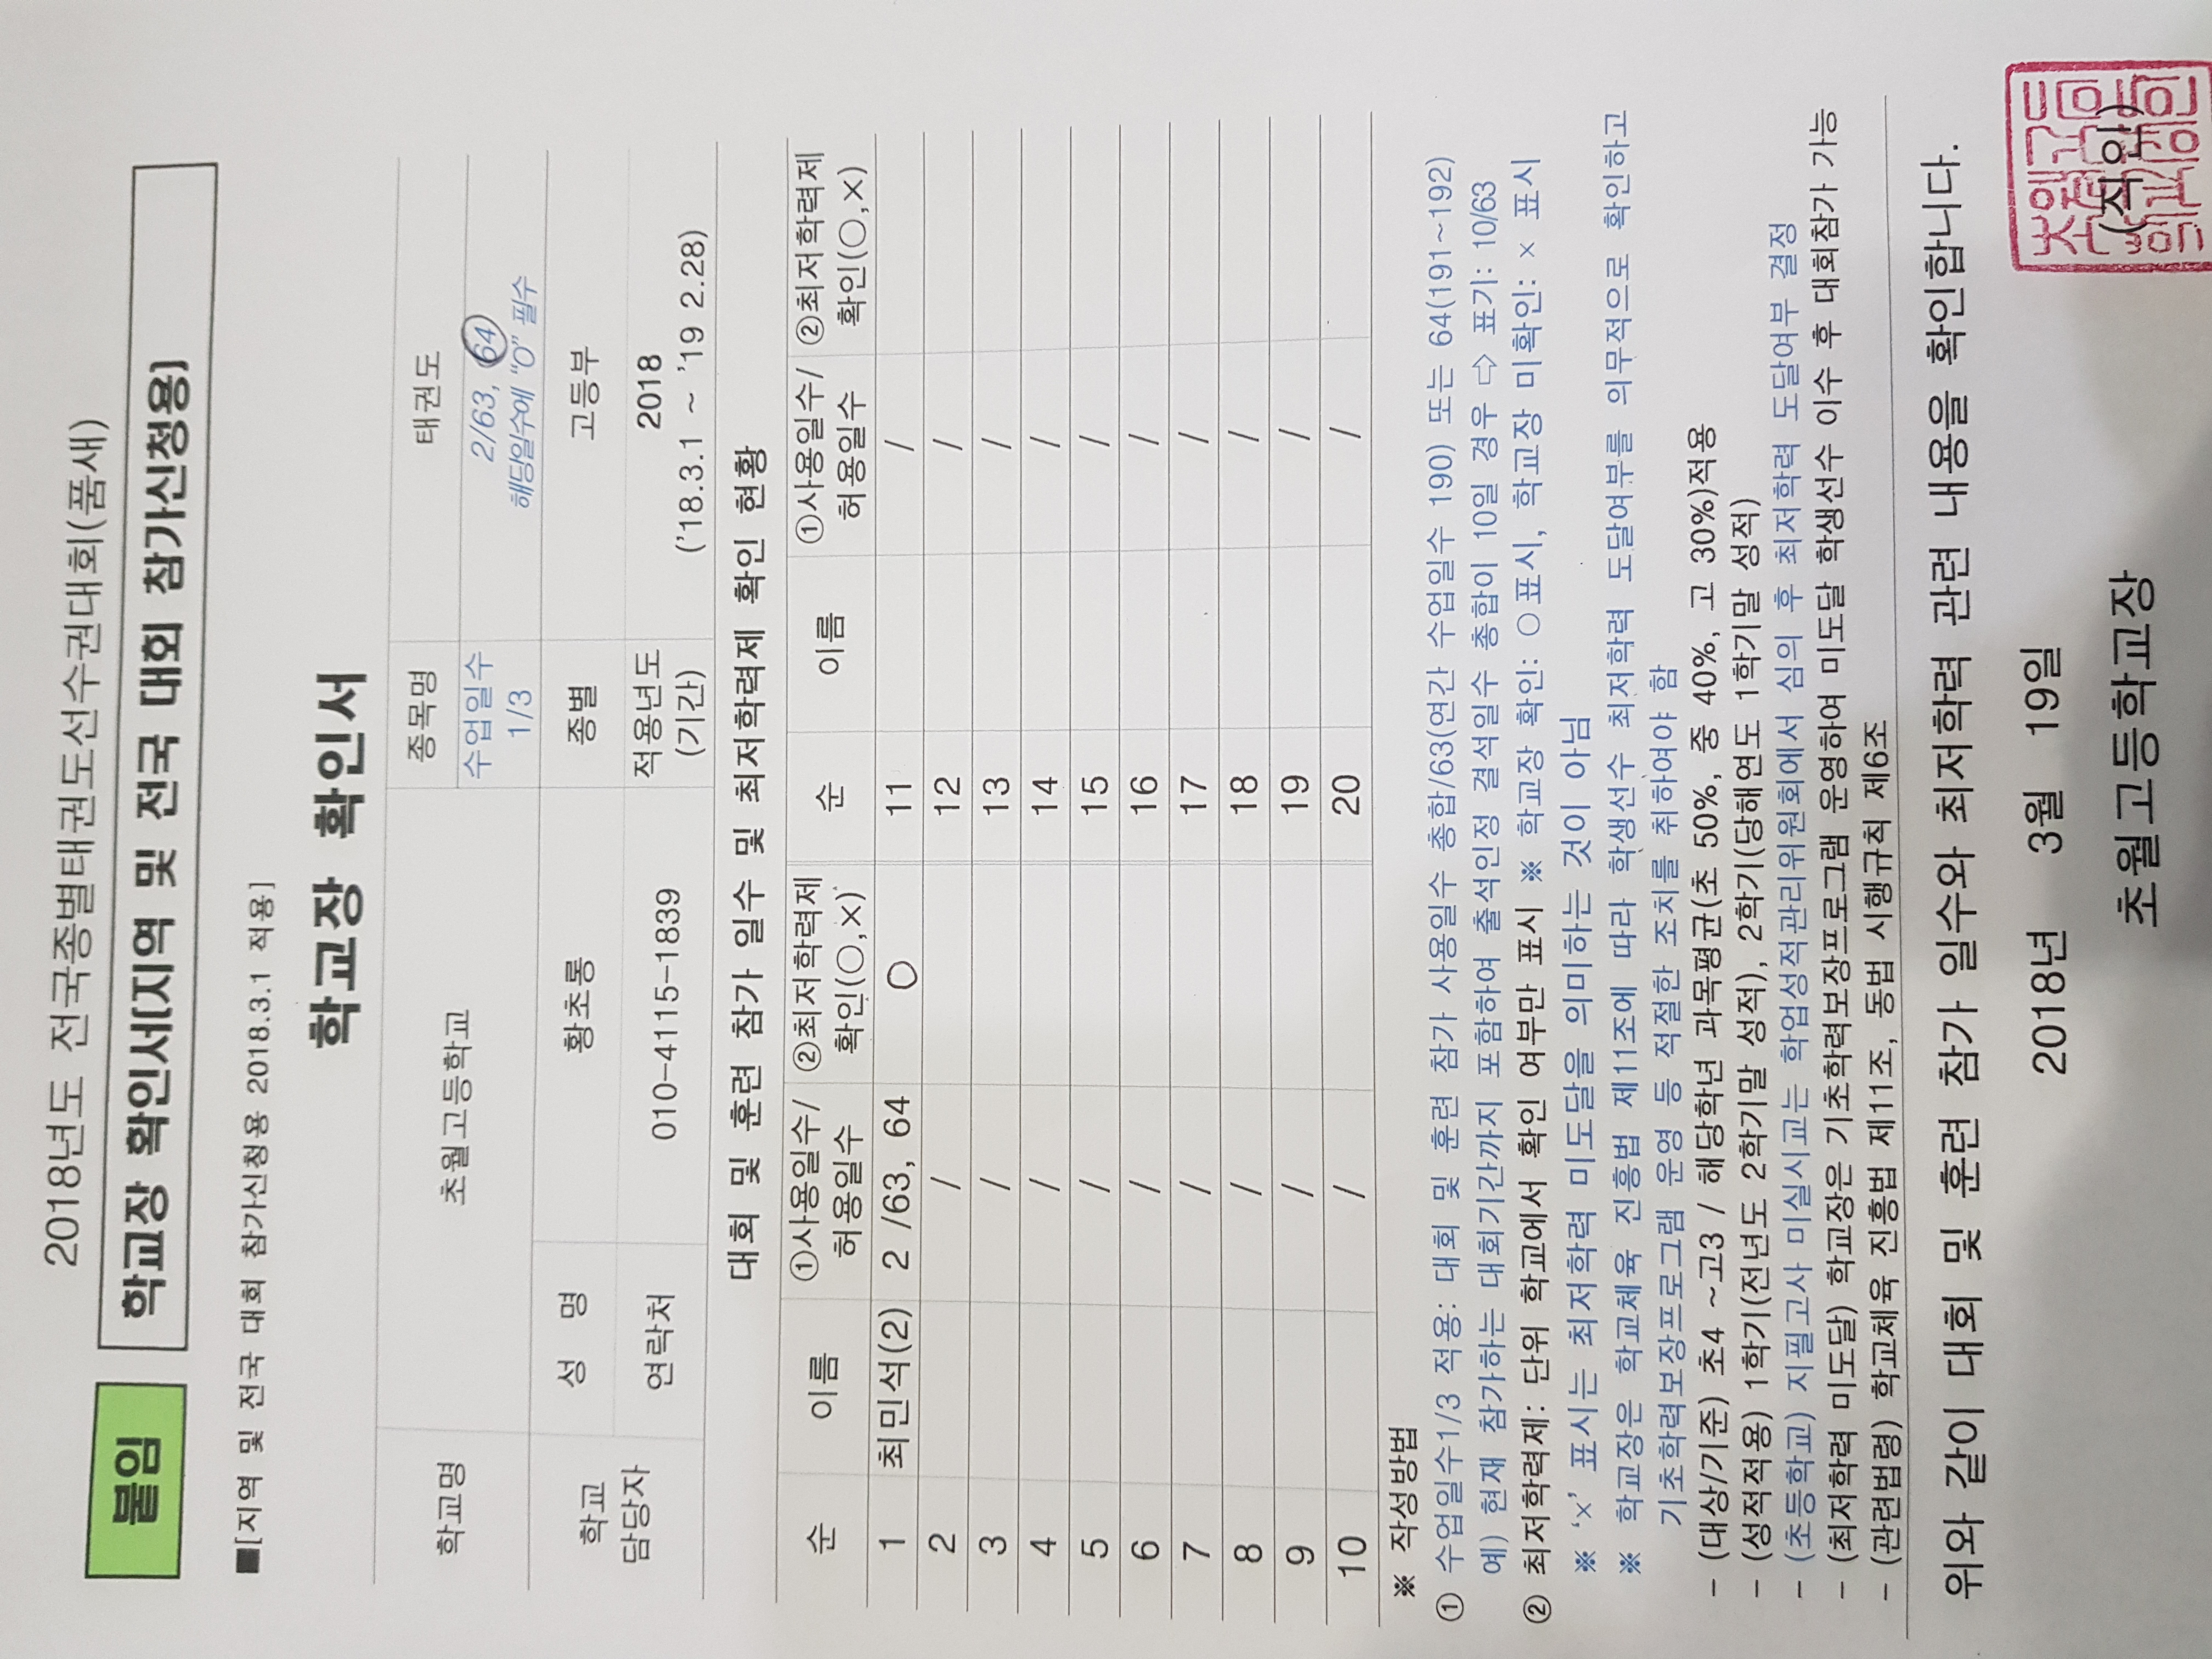 2018년도 전국종별태권도선수권대회(품새)
붙임 학교장 확인서(지역 및 전국 대회 참가신청용)
■[지역 및 전국 대회 참가신청용 2018.3.1 적용]
학교장 확인서
학교명 초월고등학교 종목명 태권도
수업일수 1/3 2/63, 64
해당일수에 "O" 필수
학교 담당자 성 명 황초롱 종별 고등부
연락처 010-4115-1839 적용년도 (기간) 2018
('18.3.1 ~ '19 2.28)
대회 및 훈련 참가 일수 및 최저학력제 확인 현황
순 이름 ①사용일수/허용일수 ②최저학력제 확인(○,×) 순 이름 ①사용일수/허용일수 ②최저학력제 확인(○,×)
1 최민석(2) 2 /63, 64 ○ 11 /
2 / 12 /
3 / 13 /
4 / 14 /
5 / 15 /
6 / 16 /
7 / 17 /
8 / 18 /
9 / 19 /
10 / 20 /
※ 작성방법
① 수업일수1/3 적용: 대회 및 훈련 참가 사용일수 총합/63(연간 수업일수 190) 또는 64(191~192)
예) 현재 참가하는 대회기간까지 포함하여 출석인정 결석일수 총합이 10일 경우 ⇨ 표기: 10/63
② 최저학력제: 단위 학교에서 확인 여부만 표시 ※ 학교장 확인: ○표시, 학교장 미확인: × 표시
※ '×' 표시는 최저학력 미도달을 의미하는 것이 아님
※ 학교장은 학교체육 진흥법 제11조에 따라 학생선수 최저학력 도달여부를 의무적으로 확인하고
기초학력보장프로그램 운영 등 적절한 조치를 취하여야 함
- (대상/기준) 초4 ~고3 / 해당학년 과목평균(초 50%, 중 40%, 고 30%)적용
- (성적적용) 1학기(전년도 2학기말 성적), 2학기(당해연도 1학기말 성적)
- (초등학교) 지필고사 미실시교는 학업성적관리위원회에서 심의 후 최저학력 도달여부 결정
- (최저학력 미도달) 학교장은 기초학력보장프로그램 운영하여 미도달 학생선수 이수 후 대회참가 가능
- (관련법령) 학교체육 진흥법 제11조, 동법 시행규칙 제6조
위와 같이 대회 및 훈련 참가 일수와 최저학력 관련 내용을 확인합니다.
2018년 3월 19일
초월고등학교장 (직인)